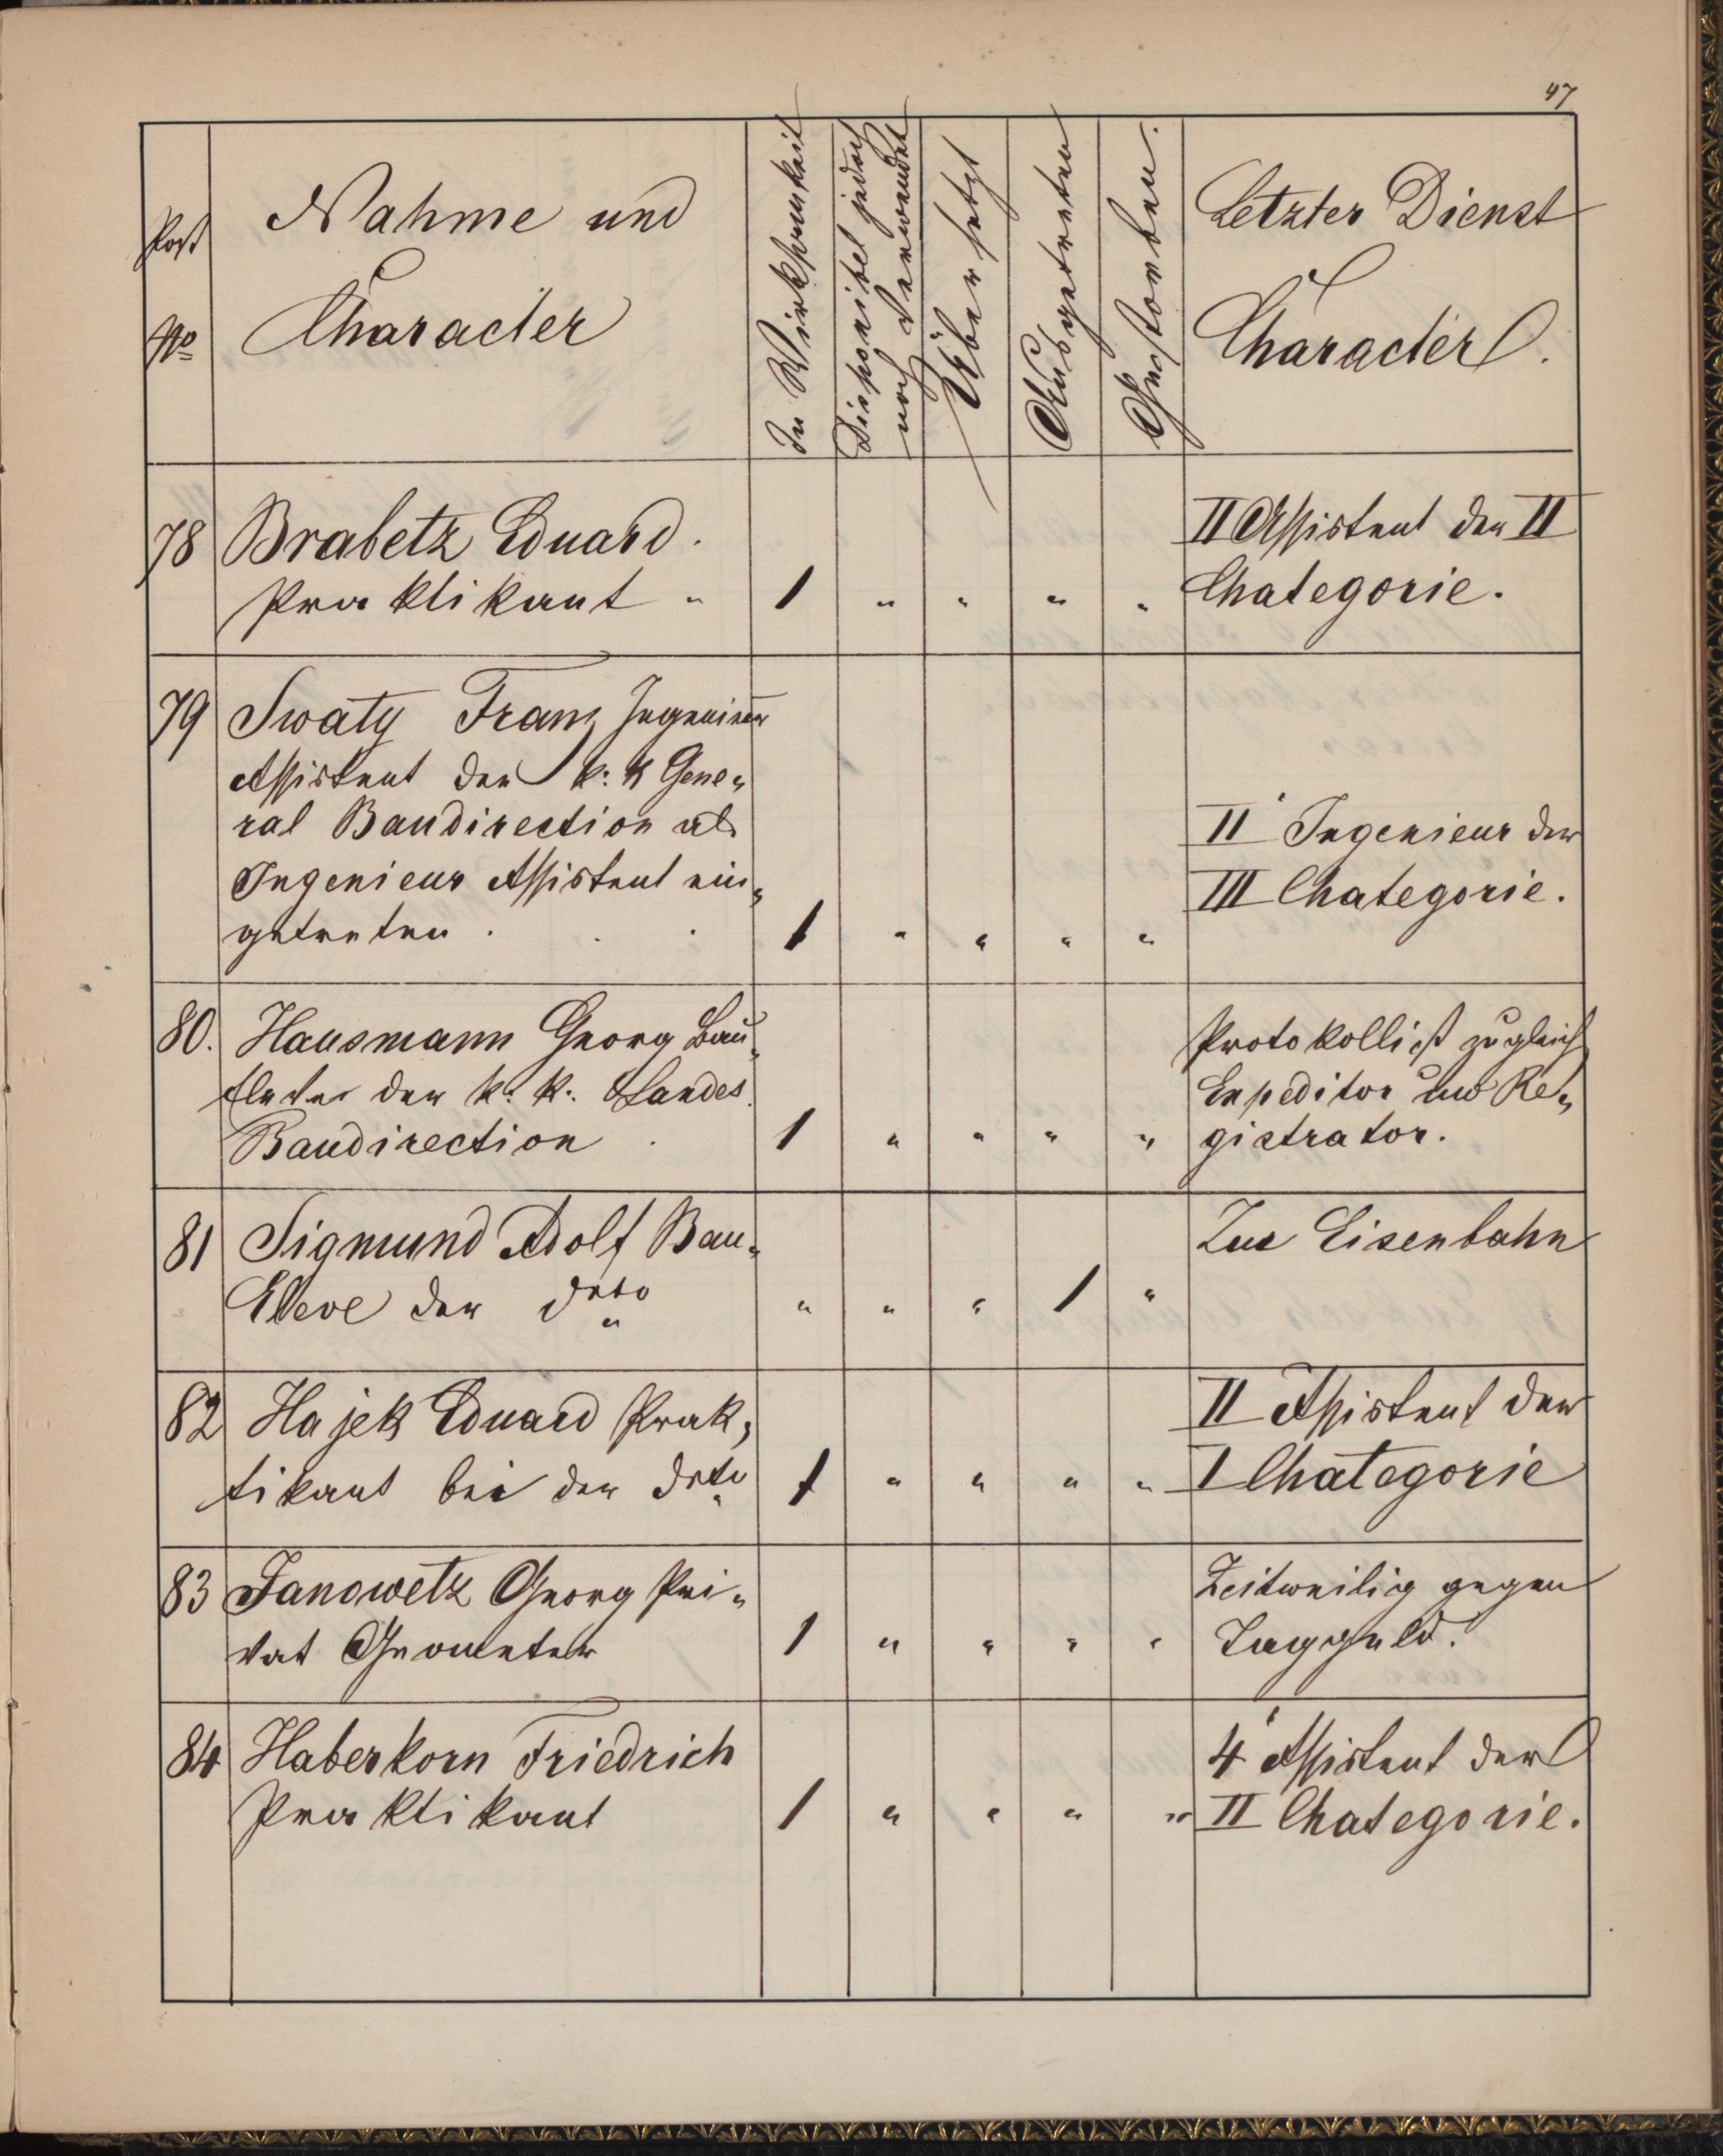 47
Post
No
Nahme und
Character
In Wirksamkeit
Disponibel jedoch
noch verwendet
Übersetzt
Ausgetreten
Gestorben.
Letzter Dienst
Character.
78 Brabetz Eduard. II Assistent der II
Praktikant " 1 " " " " Chategorie.
79 Swaty Franz Ingenieur
Assistent der k: k Gene„
ral Baudirection als II Ingenieur der
Ingenieur Assistent ein„ III Chategorie.
getreten . . . 1 " " " "
80. Hausmann Georg Bau„ Protokollist zugleich
Eleve der k. k. Landes Expeditor und Re„
Baudirection . 1 " " " " gistrator.
81 Sigmund Adolf Bau„ Zur Eisenbahn
Eleve der dtto " " " 1 "
82 Hajek Eduard Prak„ II Assistent der
tikant bei der dtto 1 " " " " I Chategorie
83 Janowetz Georg Pri„ Zeitweilig gegen
vat Geometer 1 " " " " Taggeld.
84 Haberkorn Friedrich 4 Assistent der
Praktikant 1 " " " " II Chategorie.